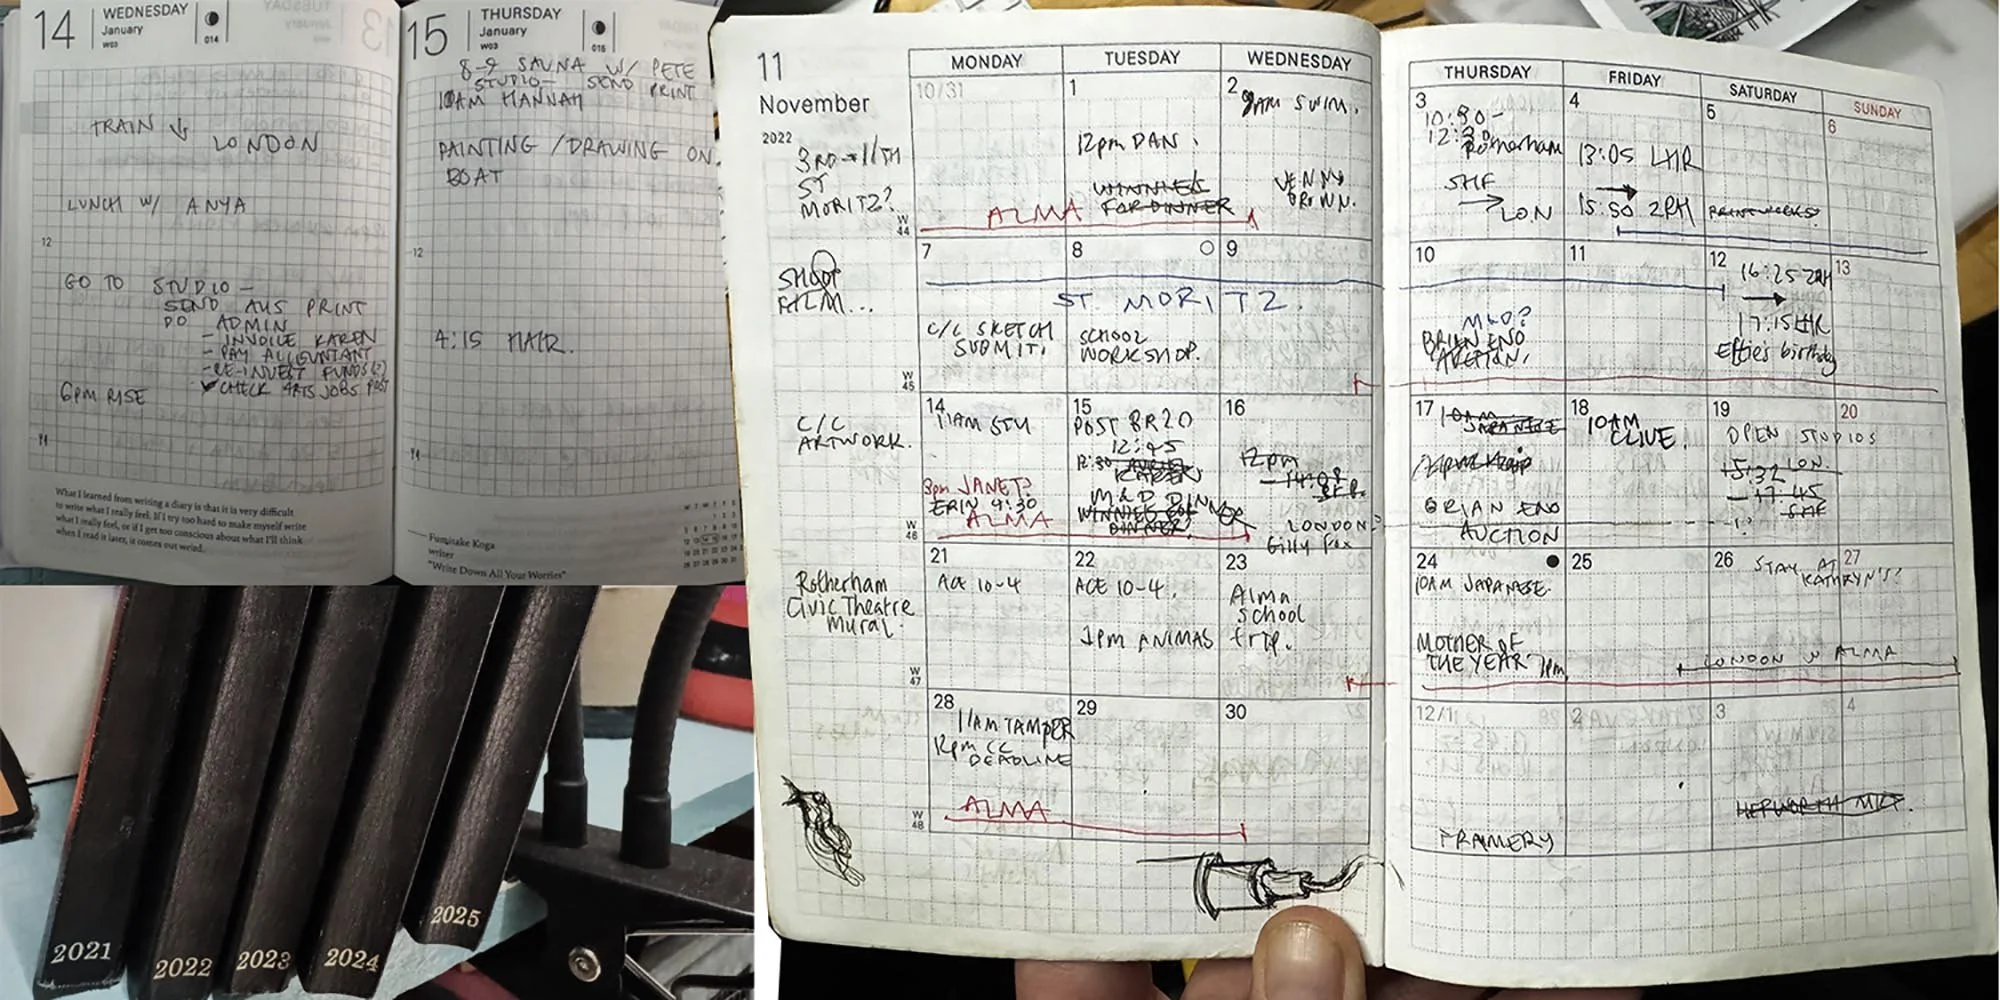 14
WEDNESDAY
January
W03
014
TRAIN
LONDON
LUNCH W/ ANYA
12
GO TO STUDIO —
SEND AUS PRINT
DO ADMIN
- INVOICE KAREN
- PAY ACCOUNTANT
- RE-INVEST FUNDS(?)
CHECK ARTS JOBS POST
6PM RISE
What I learned from writing a diary is that it is very difficult
to write what I really feel. If I try too hard to make myself write
what I really feel, or if I get too conscious about what I'll think
when I read it later, it comes out weird.
15
THURSDAY
January
W03
015
8-9 SAUNA W/ PETE
STUDIO - SEND PRINT
10AM HANNAH
PAINTING / DRAWING ON
BOAT
12
4:15 HAIR.
Fumitake Koga
writer
"Write Down All Your Worries"
2021
2022
2023
2024
2025
11
November
2022
3RD → 11TH
ST
MORITZ?
SHOOT
FILM...
C/C
ARTWORK.
Rotherham
Civic Theatre
Mural.
MONDAY TUESDAY WEDNESDAY THURSDAY FRIDAY SATURDAY SUNDAY
W44
10/31
ALMA
1
12pm DAN.
WINNIE'S
FOR DINNER
2
9AM SWIM.
JENNY
BROWN.
3
10:30 -
12:30
Rotherham
SHF
→ LON
4
13:05 LHR
→
15:50 ZRH
5
PRINTWORKS?
6
W45
7
ST. MORITZ.
C/C SKETCH
SUBMIT.
8
SCHOOL
WORKSHOP.
9
10
M&D?
BRIAN ENO
AUCTION.
11
12
16:25 ZRH
→
17:15 LHR
Effie's birthday
13
W46
14
11AM STU
3pm JANET?
ERIN 4:30
ALMA
15
POST BR20
12:45
12:30
KAREN
M&D DINNER
WINNIES FOR
DINNER?
16
12pm
LONDON?
Gilly Fox
17
10AM
JAPANESE
BRIAN ENO
AUCTION
18
10AM
CLIVE.
19
OPEN STUDIOS
15:32 LON
17:45
SHF
20
W47
21
ACE 10-4
22
ACE 10-4.
1pm ANIMAS
23
Alma
School
trip.
24
10AM JAPANESE.
MOTHER OF
THE YEAR 7pm
25
26
STAY AT
KATHRYN'S?
LONDON W ALMA
27
W48
28
11AM TAMPER
12pm CC
DEADLINE
ALMA
29
30
12/1
FRAMERY
2
3
HEPWORTH
4